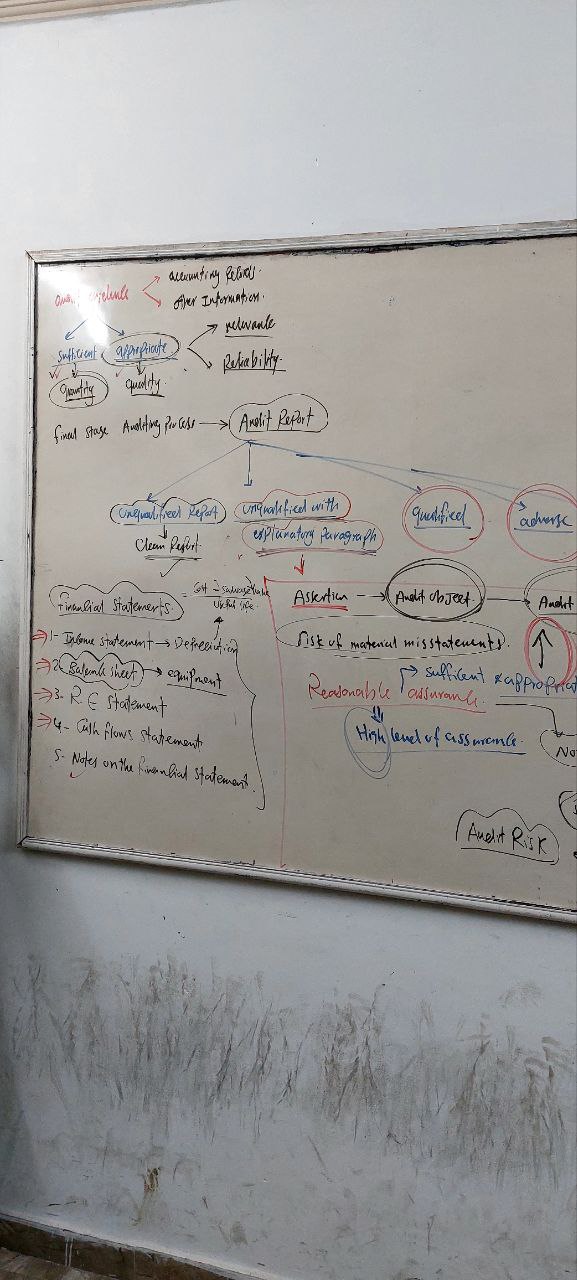 audit evidence
accounting Records.
other Information.
sufficient appropriate
relevance
Reliability.
quantity quality
final stage Auditing Process → Audit Report
Unqualified Report
Clean Report
unqualified with
explanatory paragraph
qualified
adverse
Financial statements.
salvage value
useful life.
1- Income statement → Depreciation
2- Balance sheet → equipment
3- R.E statement
4- Cash flows statement
5- Notes on the financial statement.
Assertion → Audit object → Audit
Risk of material misstatements.
sufficient & appropriat
Reasonable assurance.
High level of assurance.
No
Audit Risk